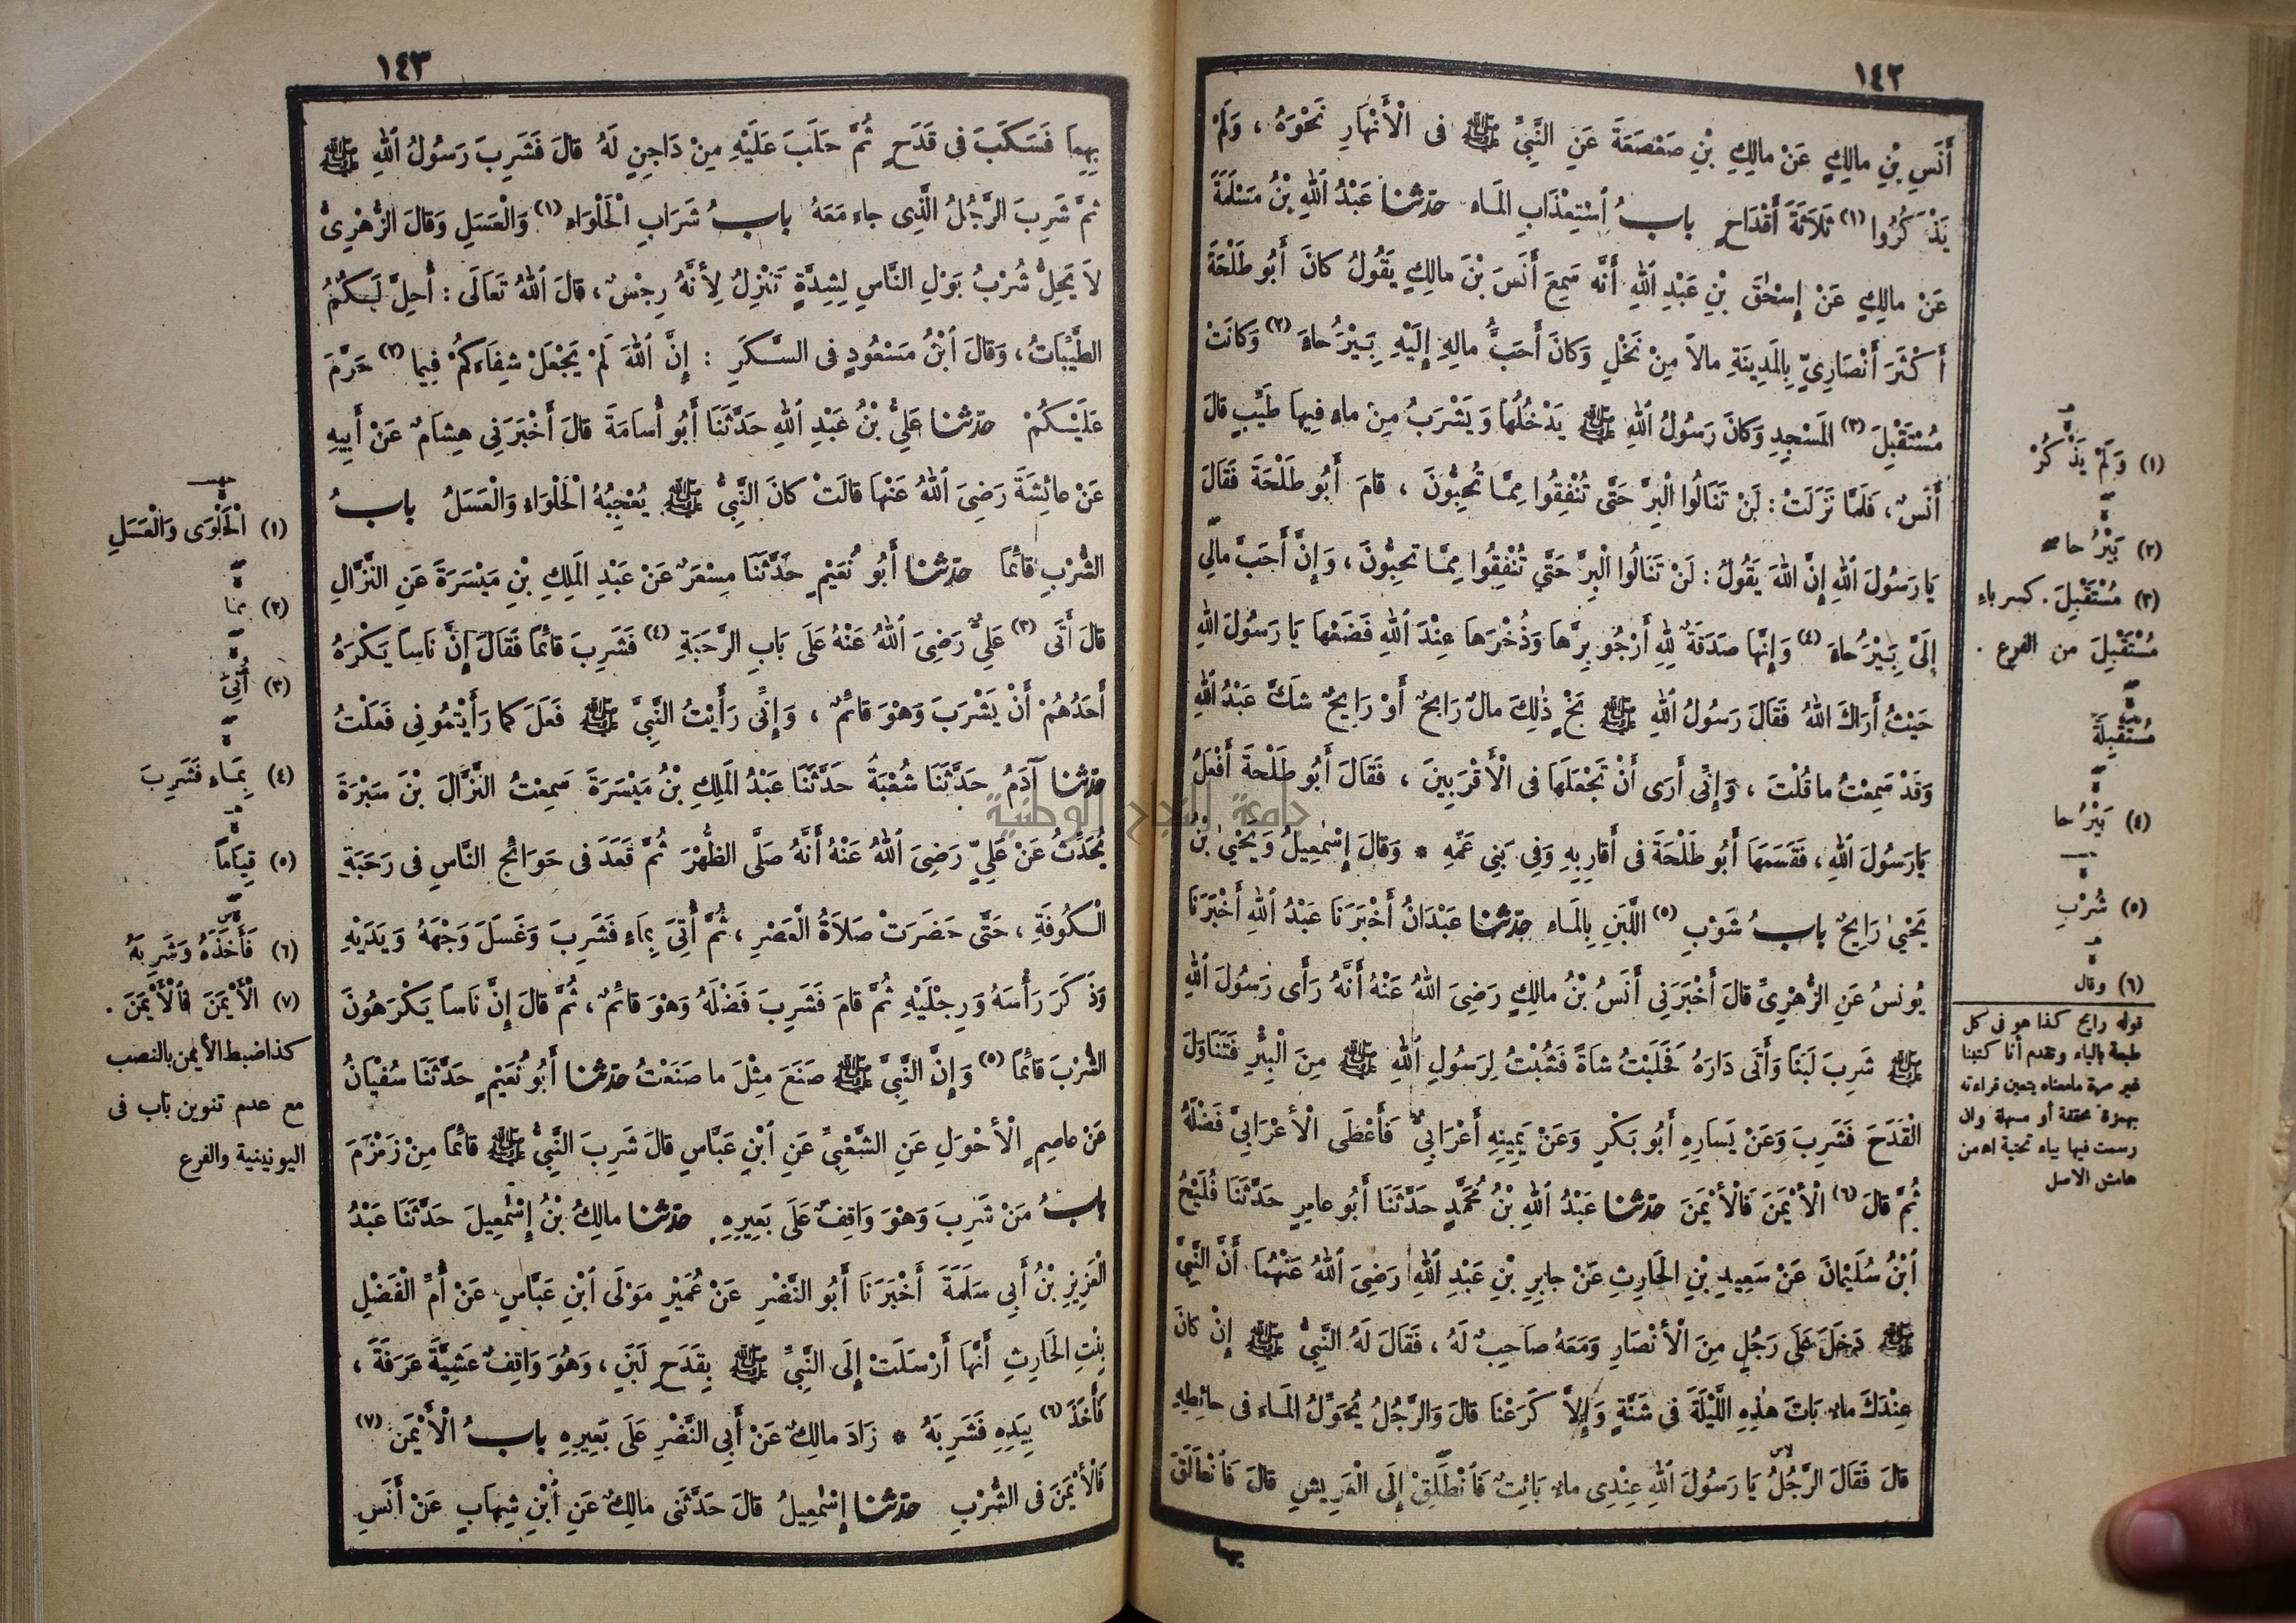 ١٤٢
أَنَسِ بْنِ مالِكٍ عَنْ مالِكِ بْنِ صَعْصَعَةَ عَنِ النَّبِيِّ ﷺ فى الْأَنْهَارِ نَحْوَهُ ، وَلَمْ
يَذْكُرُوا (١) ثَلَاثَةَ أَقْدَاحٍ باب ٱسْتِعْذَابِ الْمَاءِ حدثنا عَبْدُ ٱللهِ بْنُ مَسْلَمَةَ
عَنْ مالِكٍ عَنْ إِسْحٰقَ بْنِ عَبْدِ ٱللهِ أَنَّهُ سَمِعَ أَنَسَ بْنَ مالِكٍ يَقُولُ كانَ أَبُو طَلْحَةَ
أَكْثَرَ أَنْصَارِيٍّ بِالْمَدِينَةِ مالاً مِنْ نَخْلٍ وَكانَ أَحَبُّ مالِهِ إِلَيْهِ بَيْرُحاءَ (٢) وَكانَتْ
مُسْتَقْبِلَ (٣) الْمَسْجِدِ وَكانَ رَسُولُ ٱللهِ ﷺ يَدْخُلُهَا وَيَشْرَبُ مِنْ ماءٍ فِيهَا طَيِّبٍ قالَ
أَنَسٌ ، فَلَمَّا نَزَلَتْ : لَنْ تَنَالُوا الْبِرَّ حَتَّى تُنْفِقُوا مِمَّا تُحِبُّونَ ، قامَ أَبُو طَلْحَةَ فَقَالَ
يَا رَسُولَ ٱللهِ إِنَّ ٱللهَ يَقُولُ : لَنْ تَنَالُوا الْبِرَّ حَتَّى تُنْفِقُوا مِمَّا تُحِبُّونَ ، وَإِنَّ أَحَبَّ مالِي
إِلَىَّ بَيْرُحاءَ (٤) وَإِنَّهَا صَدَقَةٌ لِلهِ أَرْجُو بِرَّهَا وَذُخْرَهَا عِنْدَ ٱللهِ فَضَعْهَا يَا رَسُولَ ٱللهِ
حَيْثُ أَرَاكَ ٱللهُ فَقَالَ رَسُولُ ٱللهِ ﷺ بَخٍ ذٰلِكَ مالٌ رَابِحٌ أَوْ رَايِحٌ شَكَّ عَبْدُ ٱللهِ
وَقَدْ سَمِعْتُ ما قُلْتَ ، وَإِنِّى أَرَى أَنْ تَجْعَلَهَا فى الْأَقْرَبِينَ ، فَقَالَ أَبُو طَلْحَةَ أَفْعَلُ
يَا رَسُولَ ٱللهِ ، فَقَسَمَهَا أَبُو طَلْحَةَ فى أَقارِبِهِ وَفِى بَنِى عَمِّهِ * وَقالَ إِسْمٰعِيلُ وَيَحْيٰ بْنُ
يَحْيٰ رَايِحٌ باب شَوْبِ (٥) اللَّبَنِ بِالْمَاءِ حدثنا عَبْدَانُ أَخْبَرَنَا عَبْدُ ٱللهِ أَخْبَرَنَا
يُونُسُ عَنِ الزُّهْرِىِّ قالَ أَخْبَرَنِى أَنَسُ بْنُ مالِكٍ رَضِىَ ٱللهُ عَنْهُ أَنَّهُ رَأَى رَسُولَ ٱللهِ
ﷺ شَرِبَ لَبَنًا وَأَتَى دَارَهُ فَحَلَبْتُ شَاةً فَشُبْتُ لِرَسُولِ ٱللهِ ﷺ مِنَ الْبِئْرِ فَتَنَاوَلَ
الْقَدَحَ فَشَرِبَ وَعَنْ يَسَارِهِ أَبُو بَكْرٍ وَعَنْ يَمِينِهِ أَعْرَابِيٌّ فَأَعْطَى الْأَعْرَابِيَّ فَضْلَهُ
ثُمَّ قالَ (٦) الْأَيْمَنَ فَالْأَيْمَنَ حدثنا عَبْدُ ٱللهِ بْنُ مُحَمَّدٍ حَدَّثَنَا أَبُو عامِرٍ حَدَّثَنَا فُلَيْحُ
ٱبْنُ سُلَيْمانَ عَنْ سَعِيدِ بْنِ الْحَارِثِ عَنْ جابِرِ بْنِ عَبْدِ ٱللهِ رَضِىَ ٱللهُ عَنْهُمَا أَنَّ النَّبِيَّ
ﷺ دَخَلَ عَلَى رَجُلٍ مِنَ الْأَنْصَارِ وَمَعَهُ صَاحِبٌ لَهُ ، فَقَالَ لَهُ النَّبِيُّ ﷺ إِنْ كانَ
عِنْدَكَ ماءٌ بَاتَ هٰذِهِ اللَّيْلَةَ فى شَنَّةٍ وَإِلاَّ كَرَعْنَا قالَ وَالرَّجُلُ يُحَوِّلُ الْمَاءَ فى حائِطِهِ
قالَ فَقَالَ الرَّجُلُ يَا رَسُولَ ٱللهِ عِنْدِى ماءٌ بَائِتٌ فَٱنْطَلِقْ إِلَى الْعَرِيشِ قالَ فَٱنْطَلَقَ
بهما
(١) وَلَمْ يَذْكُرْ
(٢) بَيْرُحا
(٣) مُسْتَقْبِلَ . كسر باءِ
مُسْتَقْبِلَ من الفرع .
مُسْتَقْبِلَةَ
(٤) بَيْرُحا
(٥) شُرْبِ
(٦) وقال
قوله رايح كذا هو فى كل
طبعة بالياء وتقدم أنا كتبنا
غير مرة مامعناه يتعين قراءته
بهمزة محققة أو مسهلة وان
رسمت فيها بياء تحتية اه من
هامش الاصل
١٤٣
بِهِمَا فَسَكَبَ فى قَدَحٍ ثُمَّ حَلَبَ عَلَيْهِ مِنْ دَاجِنٍ لَهُ قالَ فَشَرِبَ رَسُولُ ٱللهِ ﷺ
ثُمَّ شَرِبَ الرَّجُلُ الَّذِى جاءَ مَعَهُ باب شَرَابِ الْحَلْوَاءِ (١) وَالْعَسَلِ وَقالَ الزُّهْرِىُّ
لاَ يَحِلُّ شُرْبُ بَوْلِ النَّاسِ لِشِدَّةٍ تَنْزِلُ لِأَنَّهُ رِجْسٌ ، قالَ ٱللهُ تَعَالَى : أُحِلَّ لَكُمُ
الطَّيِّبَاتُ ، وَقالَ ٱبْنُ مَسْعُودٍ فى السَّكَرِ : إِنَّ ٱللهَ لَمْ يَجْعَلْ شِفَاءَكُمْ فِيما (٢) حَرَّمَ
عَلَيْكُمْ حدثنا عَلِيُّ بْنُ عَبْدِ ٱللهِ حَدَّثَنَا أَبُو أُسَامَةَ قالَ أَخْبَرَنِى هِشَامٌ عَنْ أَبِيهِ
عَنْ عائِشَةَ رَضِىَ ٱللهُ عَنْهَا قالَتْ كانَ النَّبِيُّ ﷺ يُعْجِبُهُ الْحَلْوَاءُ وَالْعَسَلُ باب
الشُّرْبِ قائمًا حدثنا أَبُو نُعَيْمٍ حَدَّثَنَا مِسْعَرٌ عَنْ عَبْدِ الْمَلِكِ بْنِ مَيْسَرَةَ عَنِ النَّزَّالِ
قالَ أَتَى (٣) عَلِيٌّ رَضِىَ ٱللهُ عَنْهُ عَلَى بَابِ الرَّحَبَةِ (٤) فَشَرِبَ قائمًا فَقَالَ إِنَّ نَاساً يَكْرَهُ
أَحَدُهُمْ أَنْ يَشْرَبَ وَهْوَ قائمٌ ، وَإِنِّى رَأَيْتُ النَّبِيَّ ﷺ فَعَلَ كما رَأَيْتُمُونِى فَعَلْتُ
حدثنا آدَمُ حَدَّثَنَا شُعْبَةُ حَدَّثَنَا عَبْدُ الْمَلِكِ بْنُ مَيْسَرَةَ سَمِعْتُ النَّزَّالَ بْنَ سَبْرَةَ
يُحَدِّثُ عَنْ عَلِيٍّ رَضِىَ ٱللهُ عَنْهُ أَنَّهُ صَلَّى الظُّهْرَ ثُمَّ قَعَدَ فى حَوَائجِ النَّاسِ فى رَحَبَةِ
الْكُوفَةِ ، حَتَّى حَضَرَتْ صَلاَةُ الْعَصْرِ ، ثُمَّ أُتِىَ بِمَاءٍ فَشَرِبَ وَغَسَلَ وَجْهَهُ وَيَدَيْهِ
وَذَكَرَ رَأْسَهُ وَرِجْلَيْهِ ثُمَّ قامَ فَشَرِبَ فَضْلَهُ وَهْوَ قائمٌ ، ثُمَّ قالَ إِنَّ نَاساً يَكْرَهُونَ
الشُّرْبَ قائمًا (٥) وَإِنَّ النَّبِيَّ ﷺ صَنَعَ مِثْلَ ما صَنَعْتُ حدثنا أَبُو نُعَيْمٍ حَدَّثَنَا سُفْيَانُ
عَنْ عاصِمٍ الْأَحْوَلِ عَنِ الشَّعْبِىِّ عَنِ ٱبْنِ عَبَّاسٍ قالَ شَرِبَ النَّبِيُّ ﷺ قائمًا مِنْ زَمْزَمَ
باب مَنْ شَرِبَ وَهْوَ وَاقِفٌ عَلَى بَعِيرِهِ حدثنا مالِكُ بْنُ إِسْمٰعِيلَ حَدَّثَنَا عَبْدُ
الْعَزِيزِ بْنُ أَبِى سَلَمَةَ أَخْبَرَنَا أَبُو النَّضْرِ عَنْ عُمَيْرٍ مَوْلَى ٱبْنِ عَبَّاسٍ عَنْ أُمِّ الْفَضْلِ
بِنْتِ الْحَارِثِ أَنَّهَا أَرْسَلَتْ إِلَى النَّبِيِّ ﷺ بِقَدَحِ لَبَنٍ ، وَهُوَ وَاقِفٌ عَشِيَّةَ عَرَفَةَ ،
فَأَخَذَ (٦) بِيَدِهِ فَشَرِبَهُ * زَادَ مالِكٌ عَنْ أَبِى النَّضْرِ عَلَى بَعِيرِهِ باب الْأَيْمَنَ (٧)
فَالْأَيْمَنَ فى الشُّرْبِ حدثنا إِسْمٰعِيلُ قالَ حَدَّثَنى مالِكٌ عَنِ ٱبْنِ شِهَابٍ عَنْ أَنَسِ
(١) الْحَلْوَى وَالْعَسَلِ
(٢) مما
(٣) أُتِىَ
(٤) بِمَاءٍ فَشَرِبَ
(٥) قِيَاماً
(٦) فَأَخَذَهُ وَشَرِبَهُ
(٧) الْأَيْمَنَ فَٱلْأَيْمَنَ .
كذا ضبط الأيمن بالنصب
مع عدم تنوين باب فى
اليونينية والفرع
جامعة النجاح الوطنية